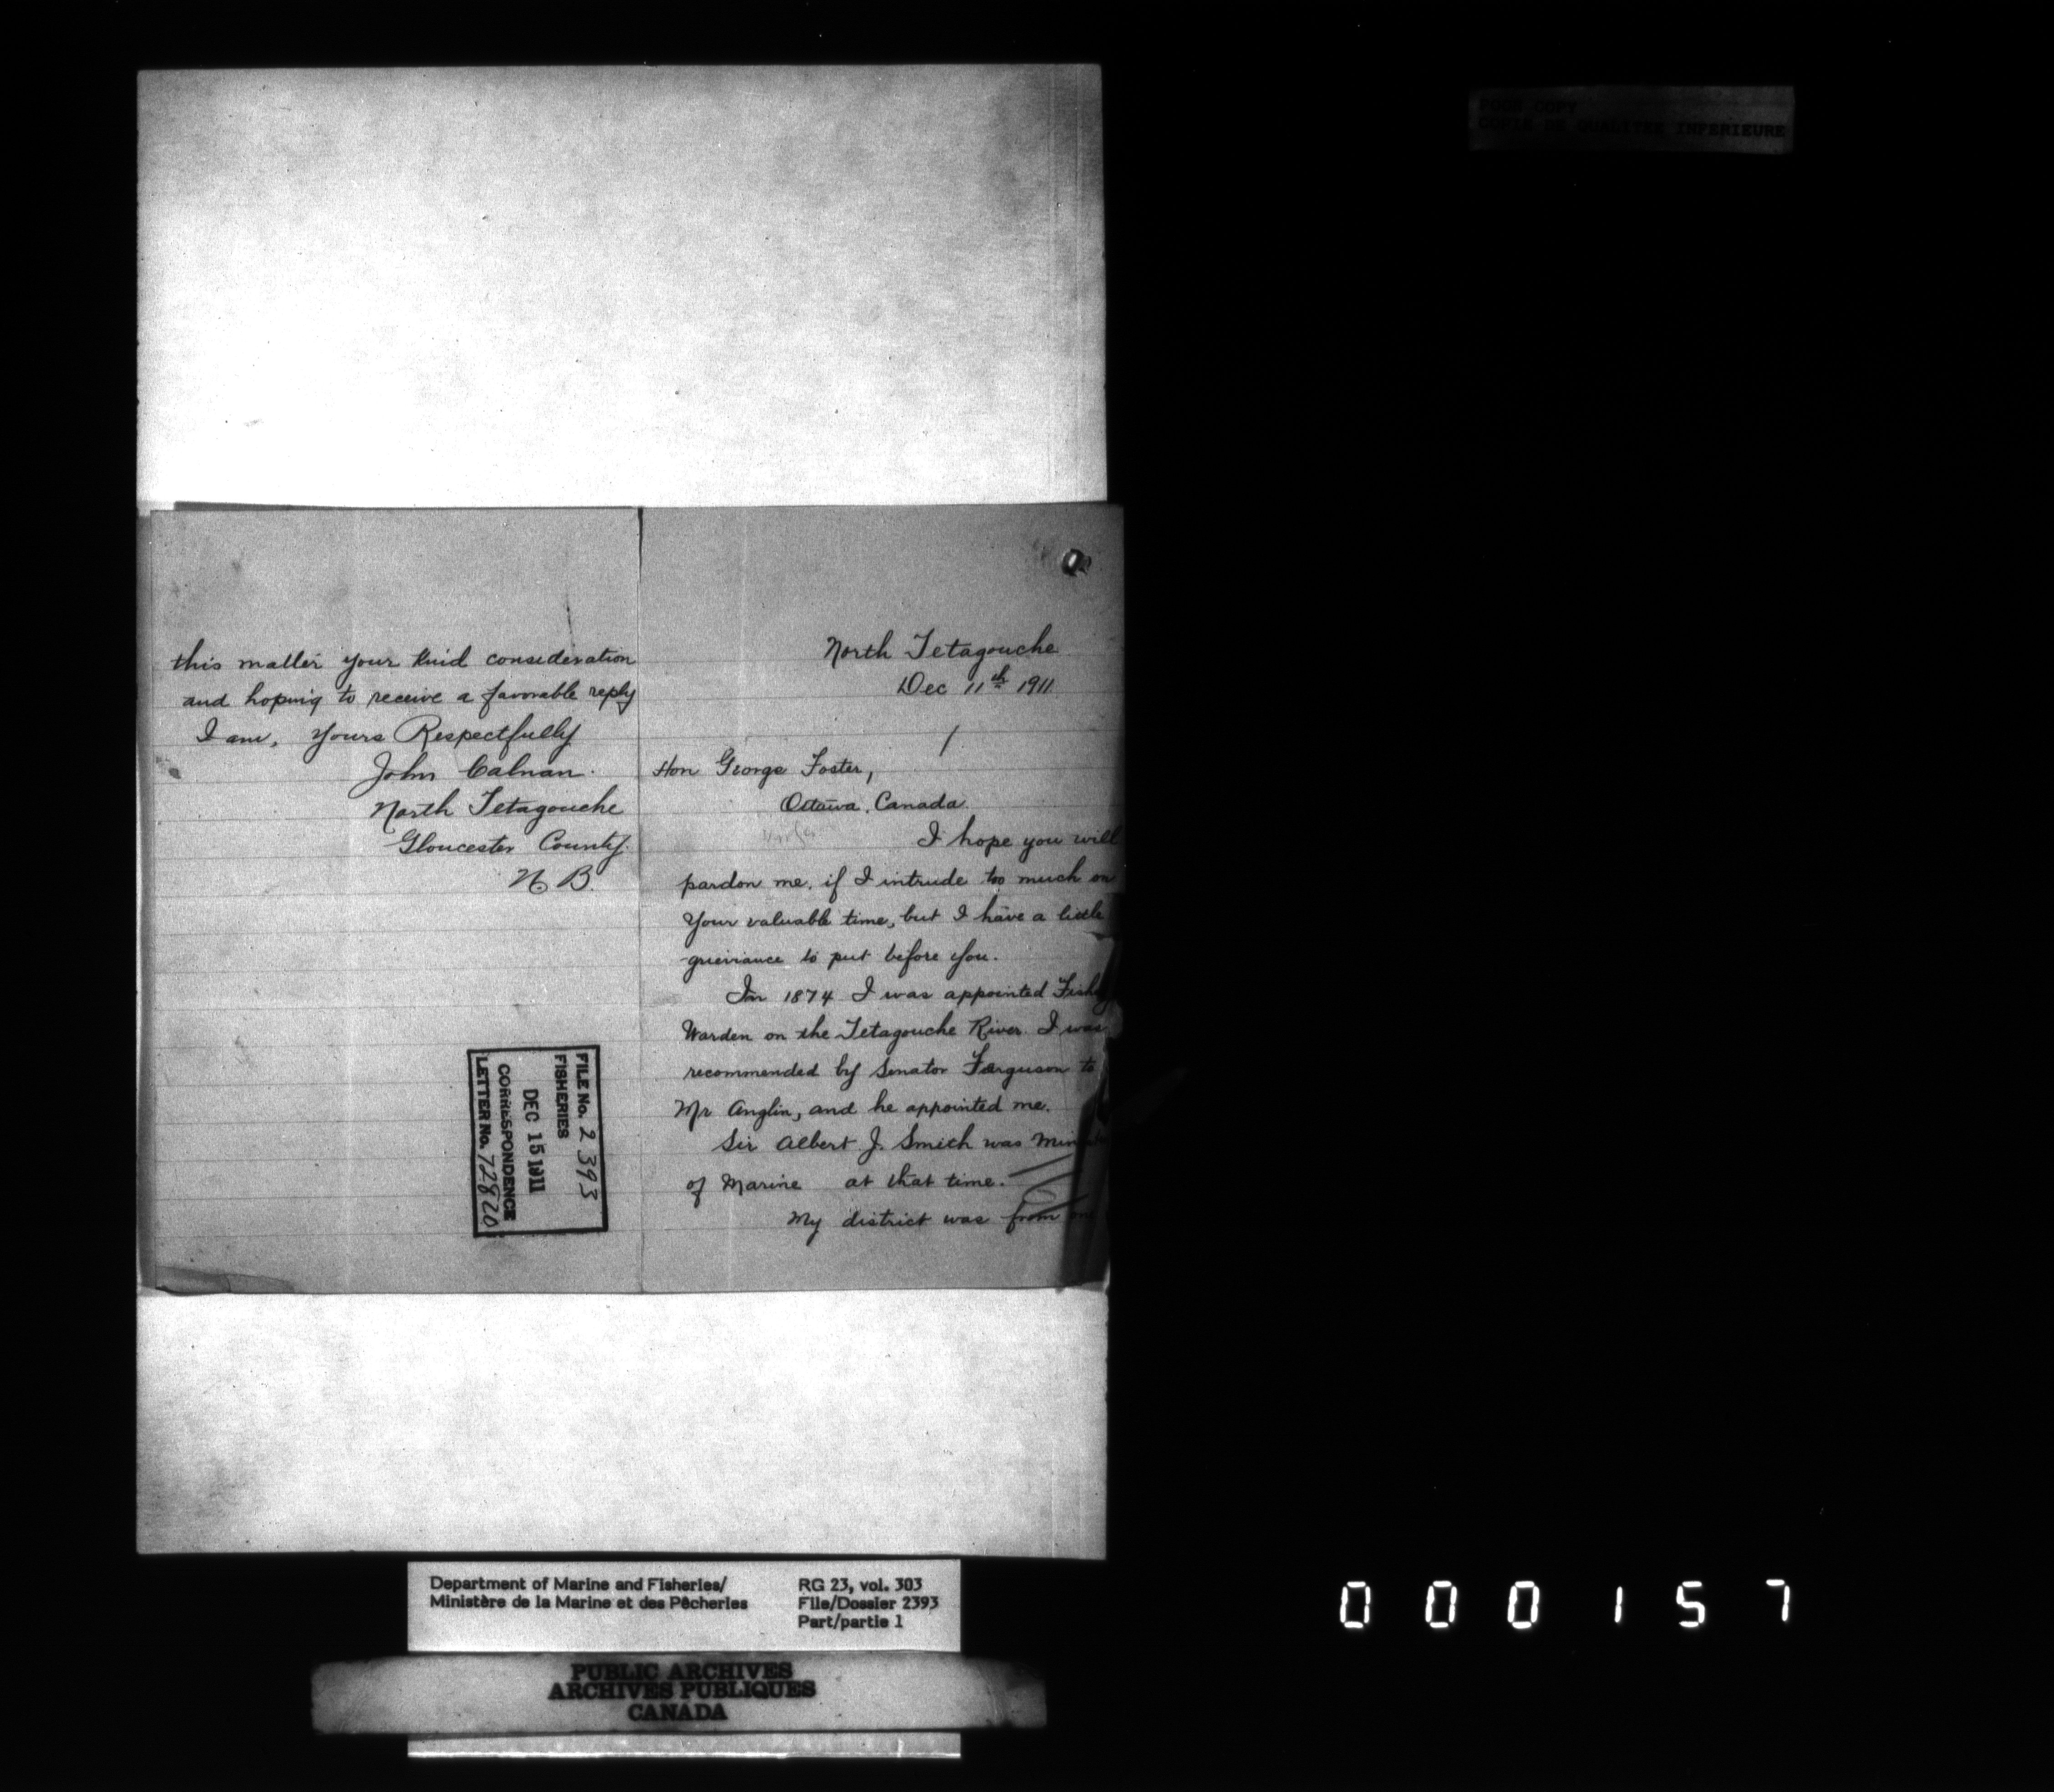 POOR COPY
COPIE DE QUALITEE INFERIEURE
this matter your kind consideration
and hoping to receive a favorable reply
I am, Yours Respectfully
John Calnan.
North Tetagouche
Gloucester County.
N B.
FILE No. 2393
FISHERIES
DEC 15 1911
CORRESPONDENCE
LETTER No. 72820
North Tetagouche
Dec 11th 1911
Hon George Foster,
Ottawa, Canada.
I hope you will
pardon me, if I intrude too much on
Your valuable time, but I have a little
grieviance to put before you.
In 1874 I was appointed Fishy
Warden on the Tetagouche River. I was
recommended by Senator Ferguson to
Mr Anglin, and he appointed me.
Sir Albert J. Smith was
of Marine at that time.
My district was from
Department of Marine and Fisheries/
Ministère de la Marine et des Pêcheries
RG 23, vol. 303
File/Dossier 2393
Part/partie 1
PUBLIC ARCHIVES
ARCHIVES PUBLIQUES
CANADA
000157